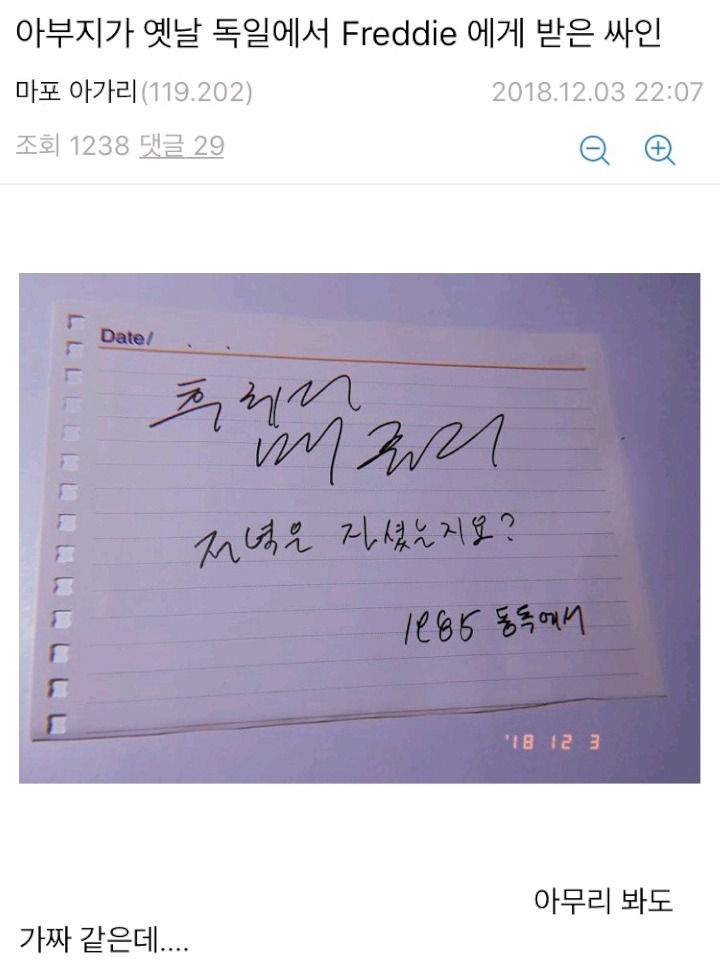 아부지가 옛날 독일에서 Freddie 에게 받은 싸인
마포 아가리(119.202) 2018.12.03 22:07
조회 1238 댓글 29
Date/ . .
흐레디
머큐리
저녁은 자셨는지요?
1985 동독에서
'18 12 3
아무리 봐도
가짜 같은데....